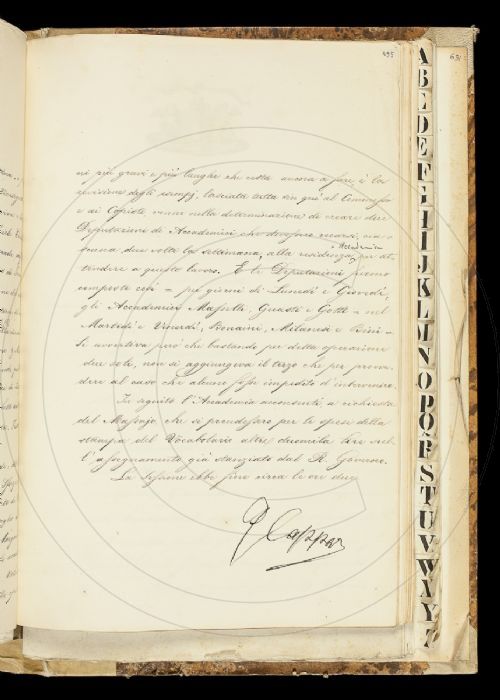 495
ni più gravi e più lunghe che resta ancora a fare, è la
revisione degli esempj, lasciata tutta fin quì al Compilatore
e ai Copisti venne nella determinazione di creare due
Deputazioni di Accademici, che dovessero recarsi, cia-
scuna due volte la settimana, alla residenza per at-
Accademica
tendere a questo lavoro. E le Deputazioni furono
composte così = pei giorni di Lunedì e Giovedì,
gli Accademici Guasti e Gotti = nel
Martedì e Venerdì, Bonaini, Milanesi e Bini =
Si avvertiva però che bastando per detta operazione
due soli, non si aggiungeva il terzo che per provve-
dere al caso che alcuno fosse impedito d'intervenire.
In seguito l'Accademia acconsentì, a richiesta
del Massajo, che si prendessero per le spese della
stampa del Vocabolario altre duemila lire sul-
l'assegnamento già stanziato dal R. Governo.
La sessione ebbe fine circa le ore due
G Capponi
631
A
B
C
D
E
F
G
H
I
J
K
L
M
N
O
P
Q
R
S
T
U
V
W
X
Y
Z